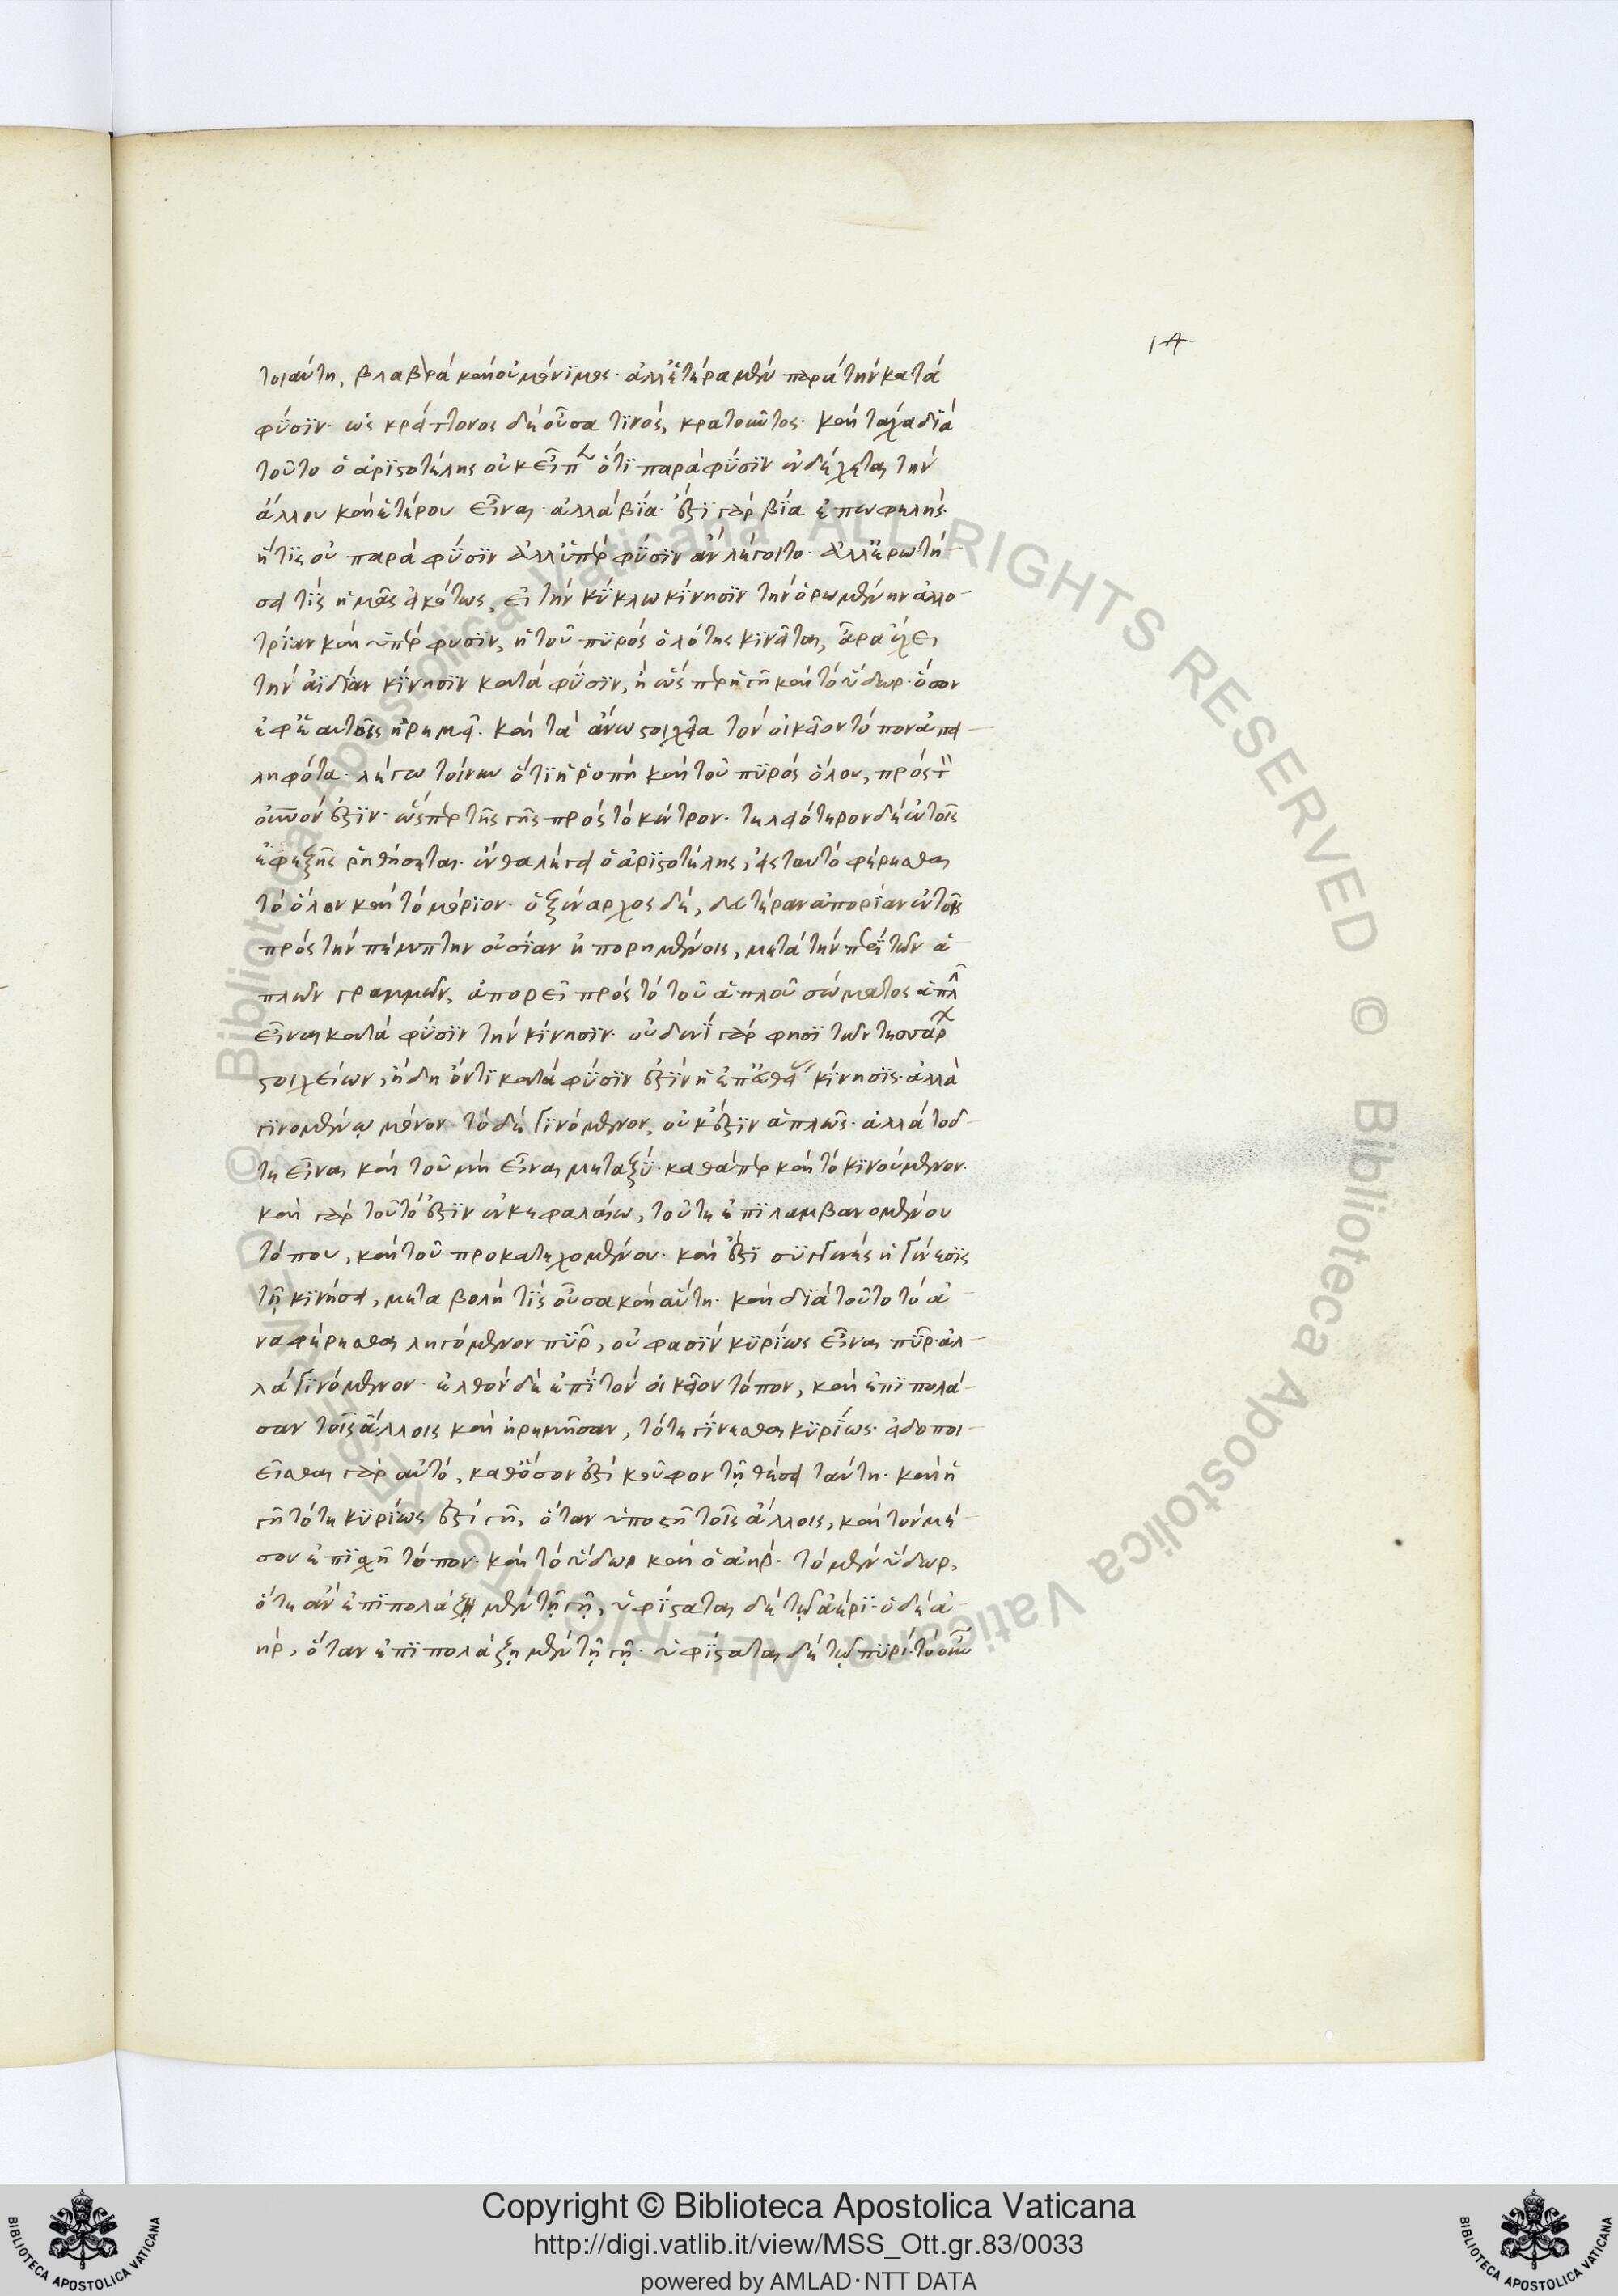 14
τοιαύτη, βλαβερά καὶ οὐ μόνιμος· ἀλλ' ἑτέρα μὲν παρὰ τὴν κατὰ
φύσιν· ὡς κρείττονος δὲ οὖσα τινὸς, κρατοῦντος· καὶ τάχα διὰ
τοῦτο ὁ ἀριστοτέλης οὐκ εἶπεν ὅτι παρὰ φύσιν ἐνδέχεται τὴν
ἄλλου καὶ ἑτέρου εἶναι· ἀλλὰ βία· ἔστι γὰρ βία ἐπωφελής·
ἥτις οὐ παρὰ φύσιν ἀλλ' ὑπὲρ φύσιν ἂν λέγοιτο· ἀλλ' ἐρωτή-
σει τίς ἡμᾶς εἰκότως, εἰ τὴν κύκλω κίνησιν τὴν ὁρωμένην ἀλλο-
τρίαν καὶ ὑπὲρ φυσιν, ἡ τοῦ πυρὸς ὁλότης κινεῖται, ἆρα ἔχει
τὴν ἀϊδίαν κίνησιν κατὰ φύσιν, ἢ ὥσπερ ἡ γῆ καὶ τὸ ὕδωρ· ὅσον
ἐφ' ἑαυτοῖς ἠρεμεῖ· καὶ τὰ ἄνω στοιχεῖα τὸν οἰκεῖον τόπον ἀπει-
ληφότα· λέγω τοίνυν ὅτι ἡ ῥοπὴ καὶ τοῦ πυρὸς ὅλου, πρὸς τὸν
οὐνόν ἐστιν· ὥσπερ τῆς γῆς πρὸς τὸ κέντρον· τελεότερον δὲ ἐν τοῖς
ἐφεξῆς ῥηθήσεται· ἔνθα λέγει ὁ ἀριστοτέλης, εἰς ταυτὸ φέρεσθαι
τὸ ὅλον καὶ τὸ μόριον· ὁ ξέναρχος δὲ, δευτέραν ἀπορίαν ἐν τοῖς
πρὸς τὴν πέμπτην οὐσίαν ἠπορημένοις, μετὰ τὴν περὶ τῶν ἁ-
πλῶν γραμμῶν, ἀπορεῖ πρὸς τὸ τοῦ ἁπλοῦ σώματος ἁπλῆν
εἶναι κατὰ φύσιν τὴν κίνησιν· οὐδενὶ γὰρ φησὶ τῶν τεσσάρων
στοιχείων, ἤδη ὄντι κατὰ φύσιν ἐστὶν ἡ ἐπ' εὐθείας κίνησις· ἀλλὰ
γινομένῳ μόνον· τὸ δὲ γινόμενον, οὐκ ἔστιν ἁπλῶς· ἀλλὰ τοῦ
τε εἶναι καὶ τοῦ μὴ εἶναι μεταξύ· καθάπερ καὶ τὸ κινούμενον·
καὶ γὰρ τοῦτό ἐστιν ἐν κεφαλαίω, τοῦ τε ἐπιλαμβανομένου
τόπου, καὶ τοῦ προκατεχομένου· καὶ ἔστι συγγενὴς ἡ γένεσις
τῇ κινήσει, μεταβολή τὶς οὖσα καὶ αὕτη· καὶ διὰ τοῦτο τὸ ἀ-
ναφέρεσθαι λεγόμενον πῦρ, οὔ φασιν κυρίως εἶναι πῦρ· ἀλ-
λὰ γινόμενον· ἐλθὸν δὲ ἐπὶ τὸν οἰκεῖον τόπον, καὶ ἐπιπολά-
σαν τοῖς ἄλλοις καὶ ἠρεμῆσαν, τότε γίνεσθαι κυρίως· εἰδοποι-
εῖσθαι γὰρ αὐτό, καθόσον ἐστὶ κοῦφον τῇ θέσει ταύτη· καὶ ἡ
γῆ τότε κυρίως ἐστὶ γῆ, ὅταν ὑποστῇ τοῖς ἄλλοις, καὶ τὸν μέ-
σον ἐπισχῇ τόπον· καὶ τὸ ὕδωρ καὶ ὁ ἀήρ· τὸ μὲν ὕδωρ,
ὅτε ἂν ἐπιπολάζῃ μὲν τῇ γῇ, ὑφίσταται δὲ τῷ ἀέρι· ὁ δὲ ἀ-
ὴρ, ὅταν ἐπιπολάζῃ μὲν τῇ γῇ· ὑφίσταται δὲ τῷ πυρί· τὸ οὖν
© Biblioteca Apostolica Vaticana ALL RIGHTS RESERVED © Biblioteca Apostolica Vaticana ALL RIGHTS RESERVED
BIBLIOTECA APOSTOLICA VATICANA
Copyright © Biblioteca Apostolica Vaticana
http://digi.vatlib.it/view/MSS_Ott.gr.83/0033
powered by AMLAD·NTT DATA
BIBLIOTECA APOSTOLICA VATICANA